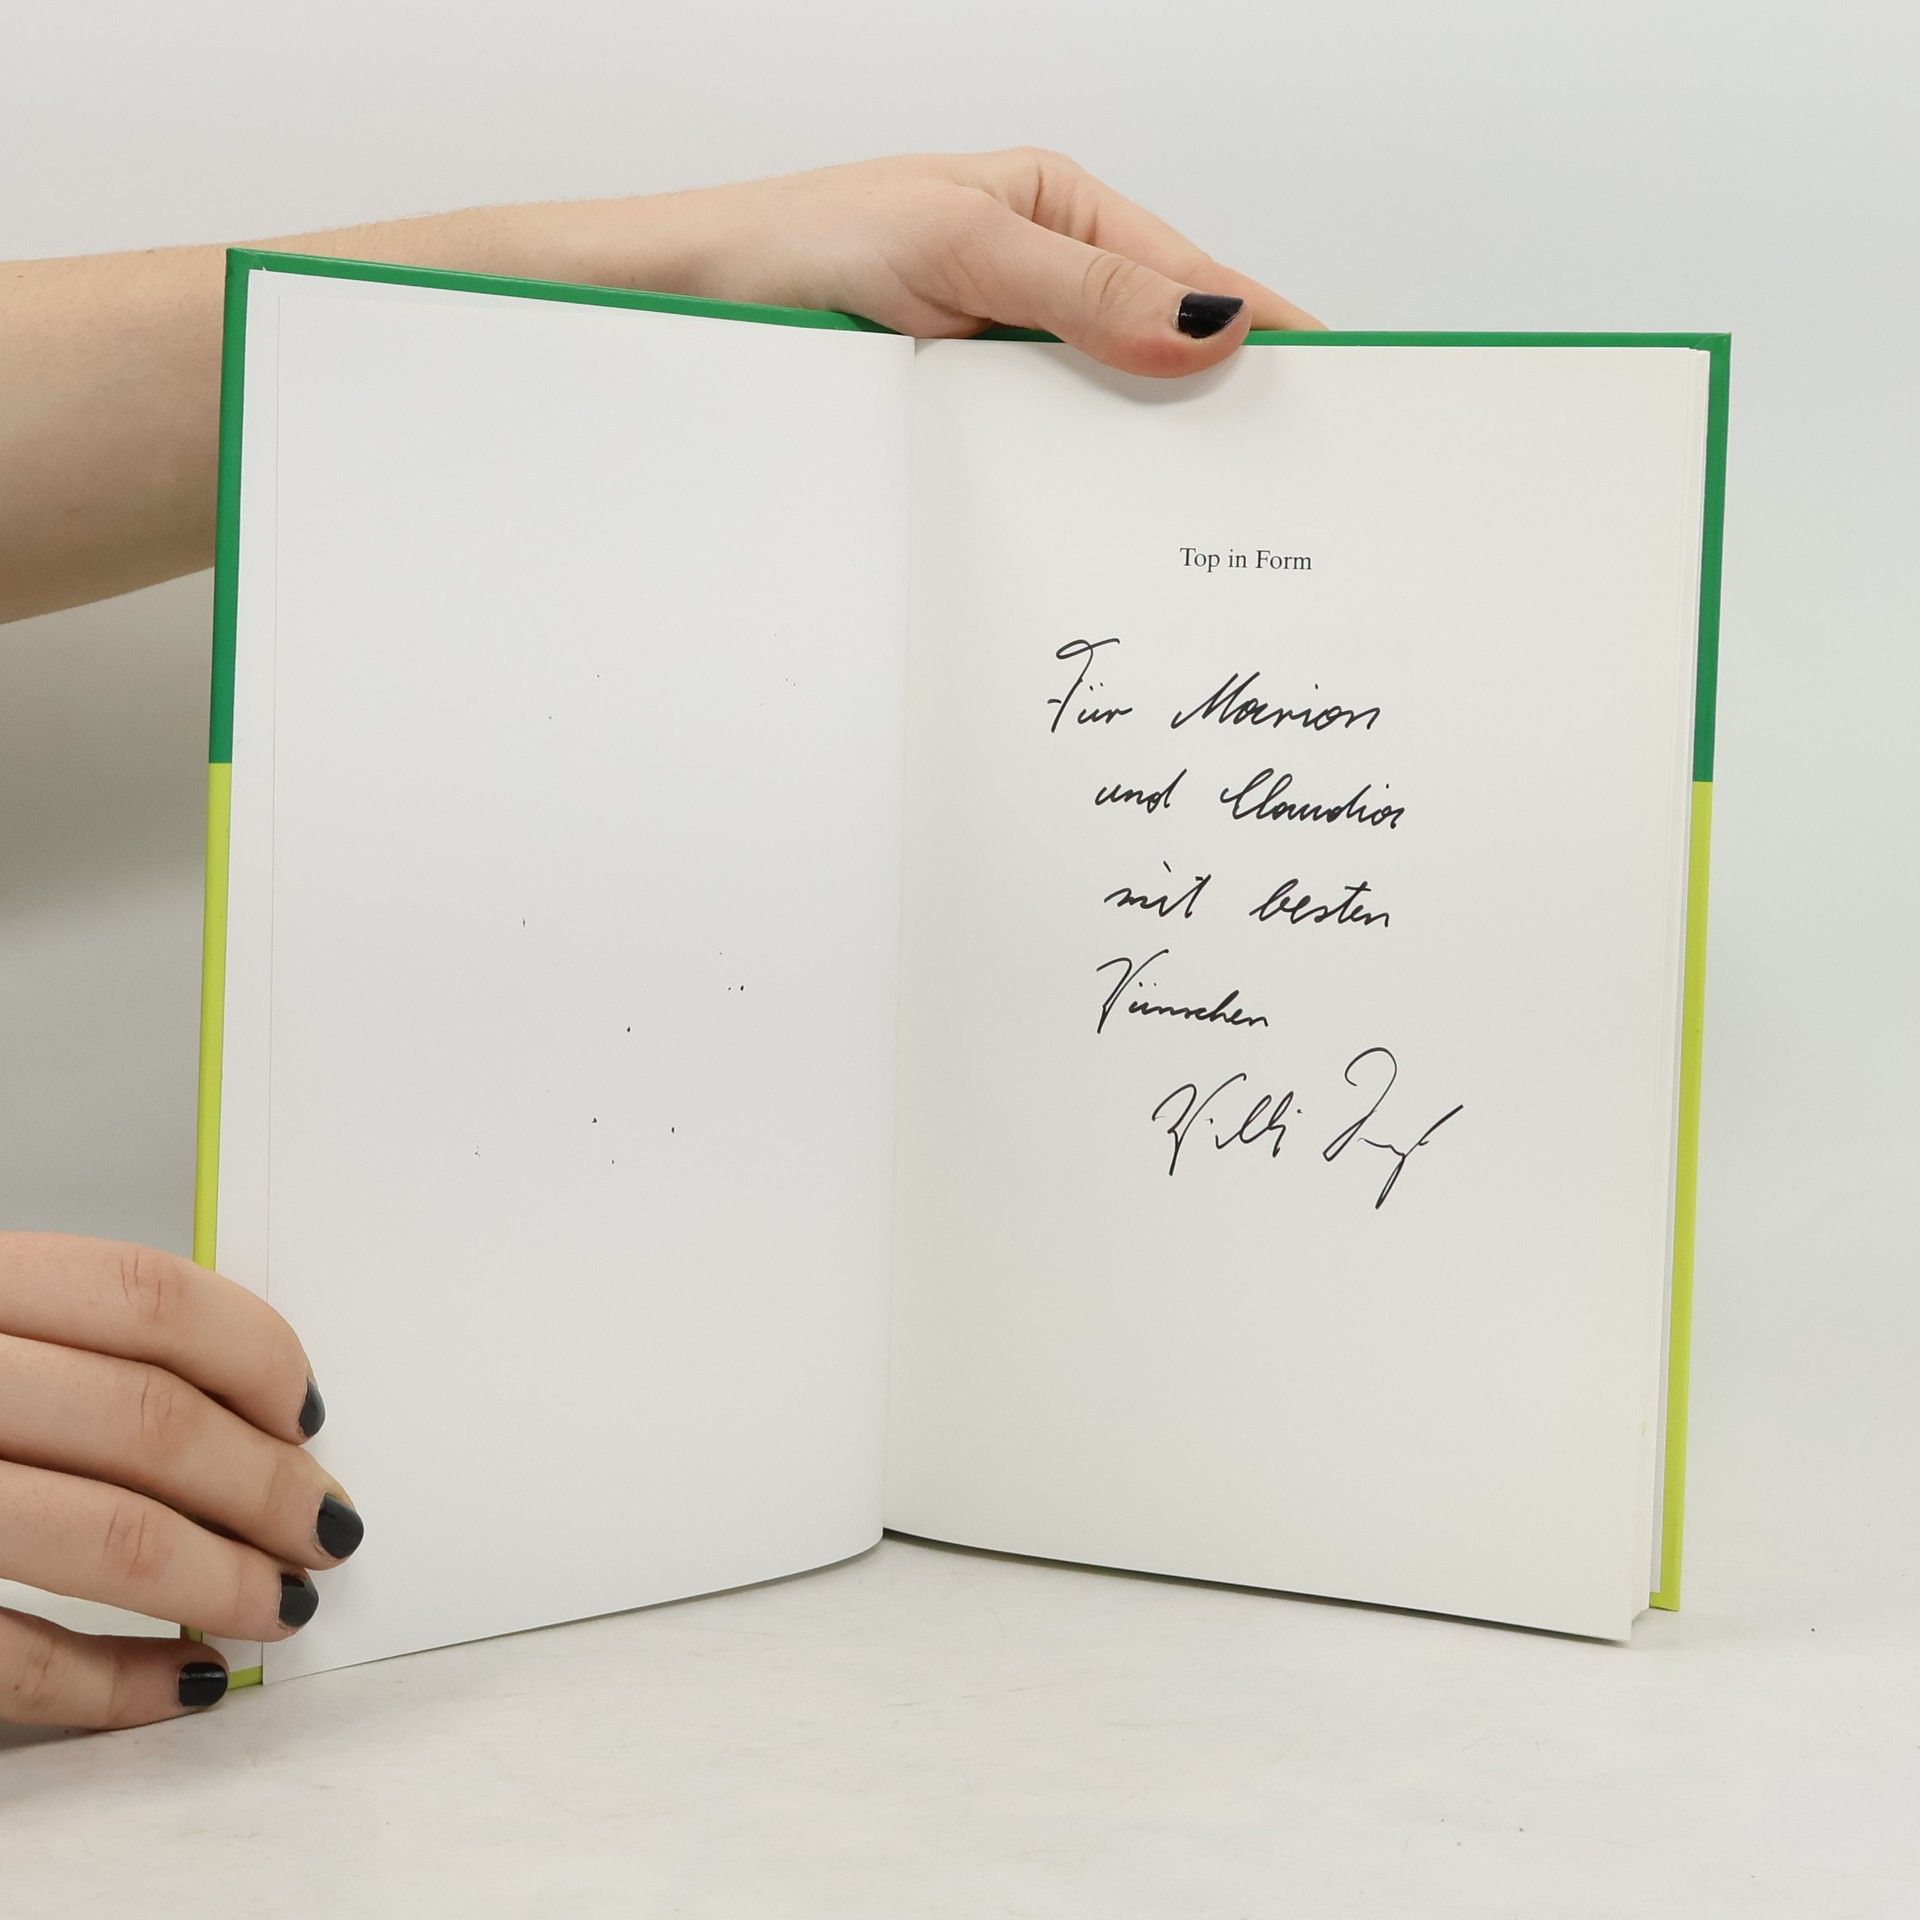 Top in Form
Für Marion
und Claudia
mit besten
Wünschen
Willi